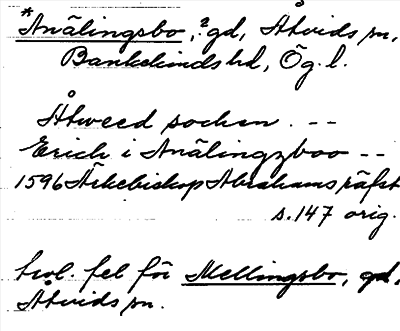 *Anälingsbo, ?gd, Åtvids sn,
Bankekinds hd, Ög. l.
Åtweed sochen. --
Erich i Anälingzboo --
1596 Ärkebiskop Abrahams räfst
s. 147 orig.
trol. fel för Mellingsbo, gd,
Åtvids sn.